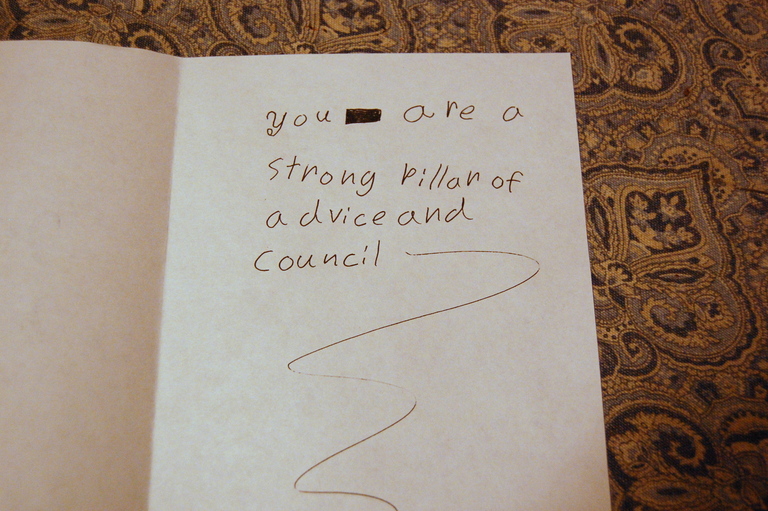 you are a
strong pillar of
advice and
council